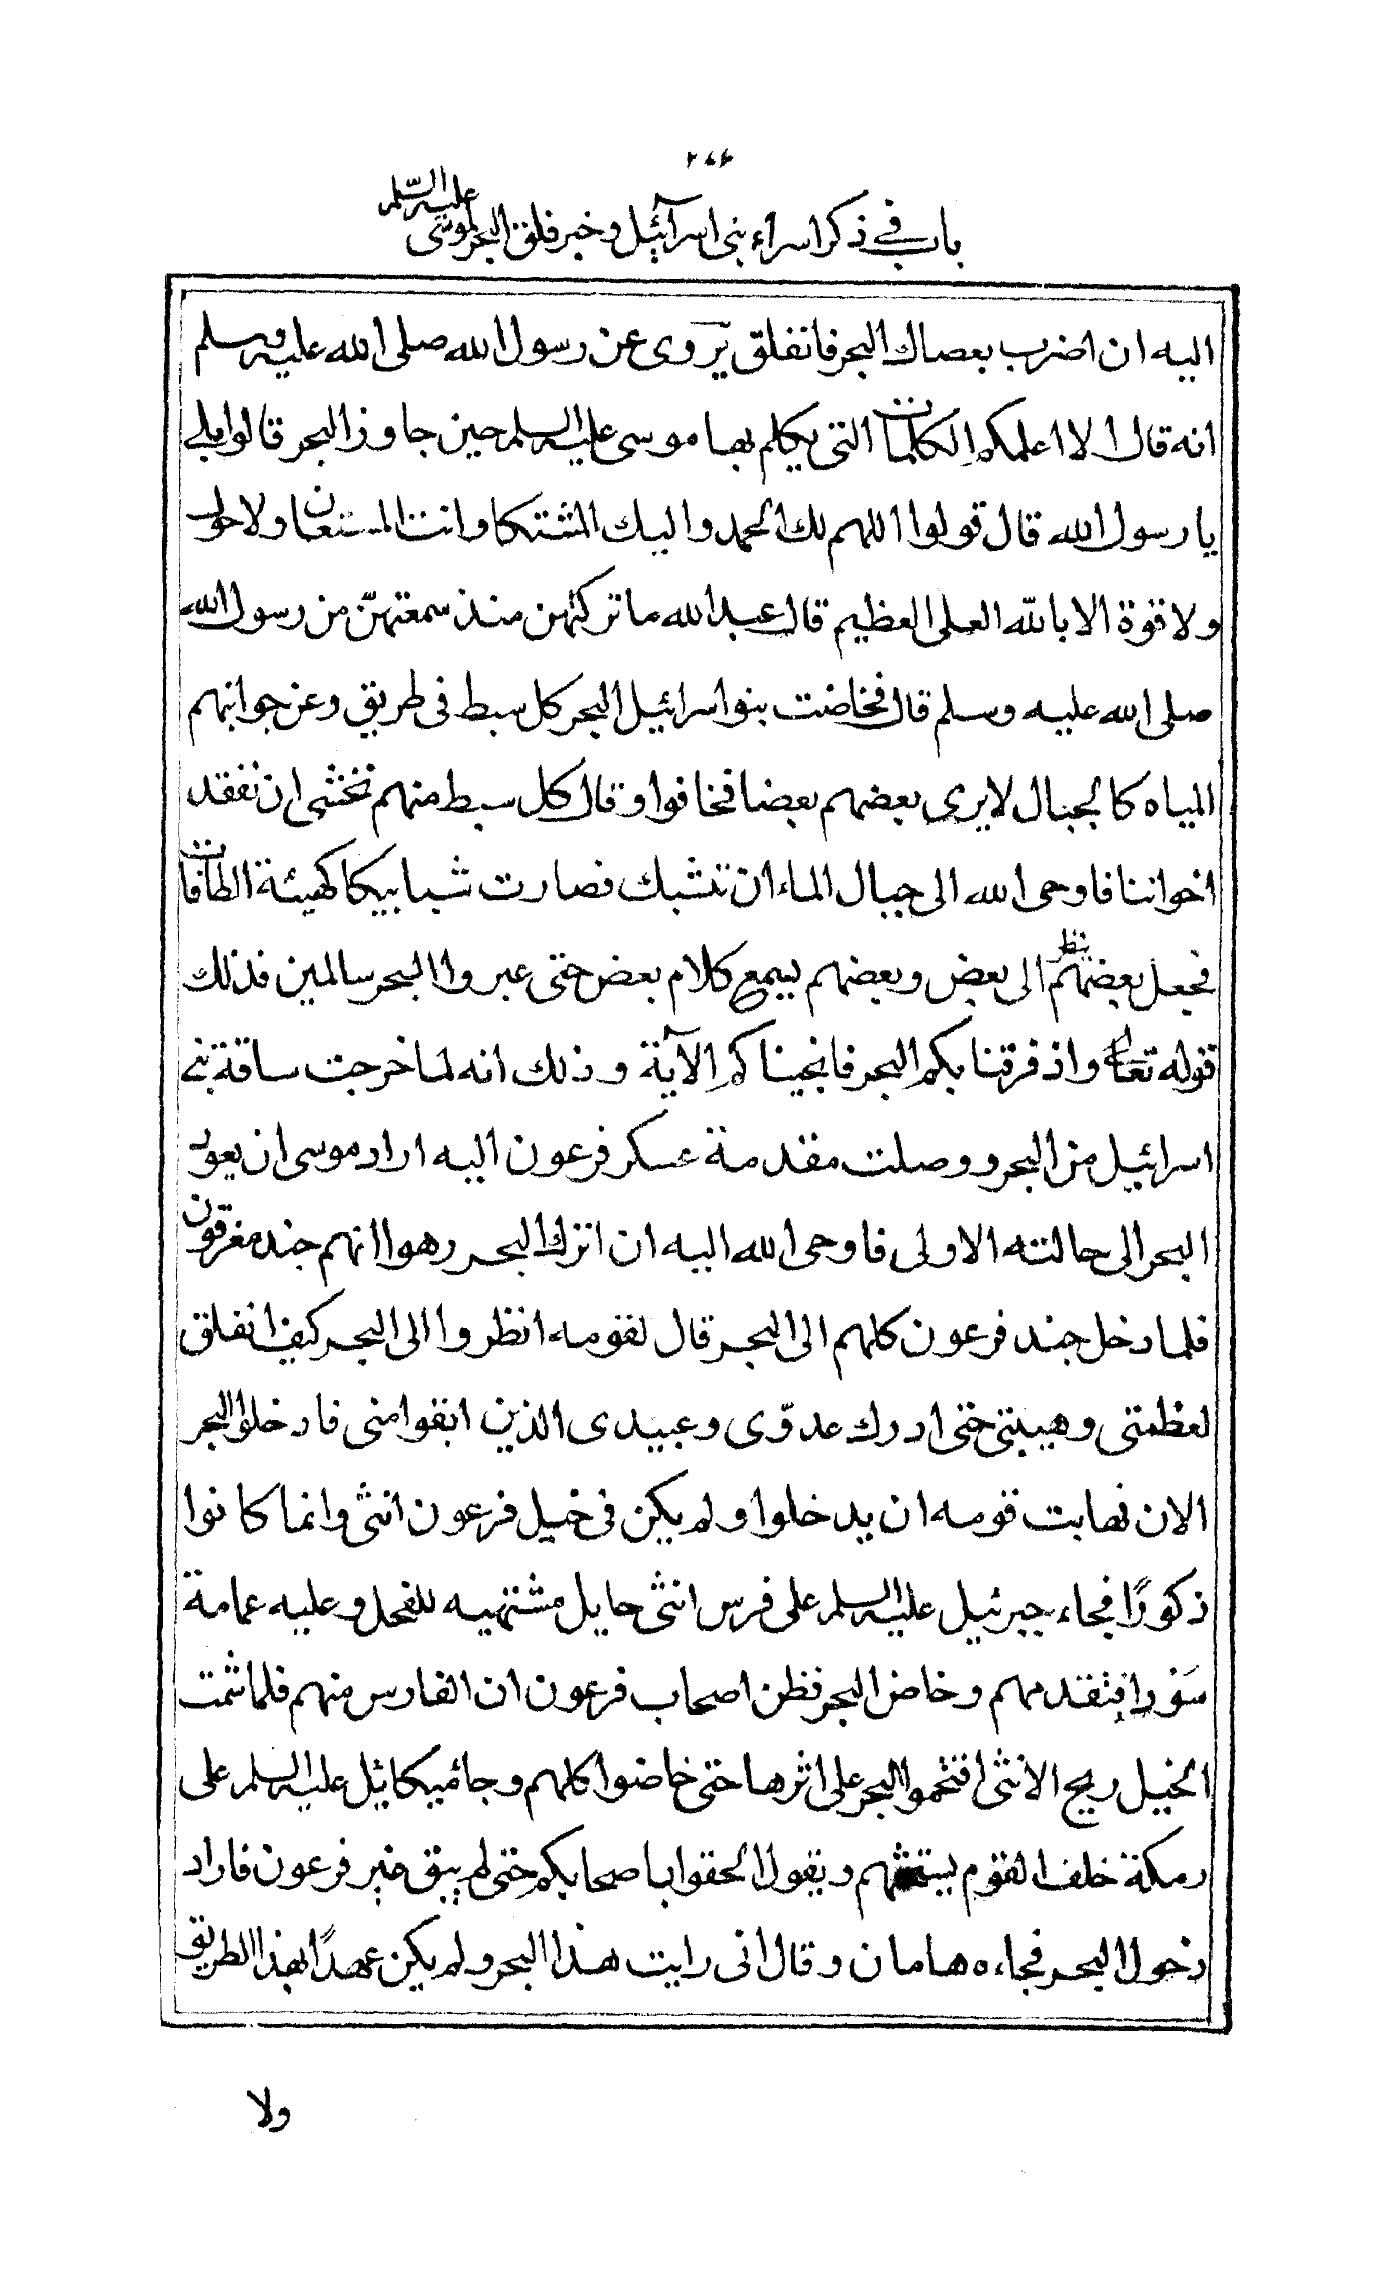 ٢٨٤
باب في ذكر اسراء بنى اسرآئيل وخبر فلق البحر لموسى عليه السلم
اليه ان اضرب بعصاك البحر فانفلق يروى عن رسول الله صلى الله عليه وسلم
انه قال الا اعلمكم الكلمات التى تكلم بها موسى عليه السلم حين جاوز البحر قالوا بلى
يا رسول الله قال قولوا اللهم لك الحمد واليك المشتكا وانت المستعان ولا حول
ولا قوة الا بالله العلى العظيم قال عبد الله ما تركتهن منذ سمعتهنّ من رسول الله
صلى الله عليه وسلم قال فخاضت بنو اسرائيل البحر كل سبط فى طريق وعن جوانبهم
المياه كالجبال لا يرى بعضهم بعضا فخافوا وقال كل سبط منهم نخشى ان نفقد
اخواننا فاوحى الله الى جبال الماء ان تشبك فصارت شبابيكا كهيئة الطاقات
فجعل بعضهم ينظر الى بعض وبعضهم يسمع كلام بعض حتى عبروا البحر سالمين فذلك
قوله تعالى واذ فرقنا بكم البحر فانجيناكم الآية وذلك انه لما خرجت ساقة بنى
اسرائيل من البحر ووصلت مقدمة عسكر فرعون اليه اراد موسى ان يعود
البحر الى حالته الاولى فاوحى الله اليه ان اترك البحر رهوا انهم جند مغرقون
فلما دخل جند فرعون كلهم الى البحر قال لقومه انظروا الى البحر كيف انفلق
لعظمتى وهيبتى حتى ادرك عدوّى وعبيدى الذين ابقوا منى فادخلوا البحر
الان فهابت قومه ان يدخلوا ولم يكن فى خيل فرعون انثى وانما كانوا
ذكورًا فجاء جبرئيل عليه السلم على فرس انثى حايل مشتهيه للفحل وعليه عمامة
سَودا فتقدمهم وخاض البحر فظن اصحاب فرعون ان الفارس منهم فلما شمت
الخيل ريح الانثى اقتحموا البحر على اثرها حتى خاضوا كلهم وجا ميكائل عليه السلم على
رمكة خلف القوم يستحثهم ويقول الحقوا باصحابكم حتى لم يبق غير فرعون فاراد
دخول البحر فجاءه هامان وقال انى رايت هذا البحر ولم يكن عهدًا بهذا الطريق
ولا